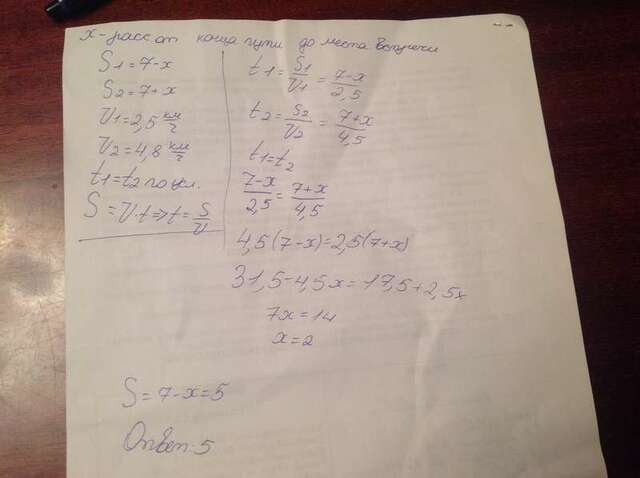 x-расс от конца пути до места встречи
S1=7-x
S2=7+x
V1=2,5 км/ч
V2=4,8 км/ч
t1=t2 по усл.
S=V·t=>t=S/V
t1=S1/V1=7-x/2,5
t2=S2/V2=7+x/4,5
t1=t2
7-x/2,5=7+x/4,5
4,5(7-x)=2,5(7+x)
31,5-4,5x=17,5+2,5x
7x=14
x=2
S=7-x=5
Ответ:5